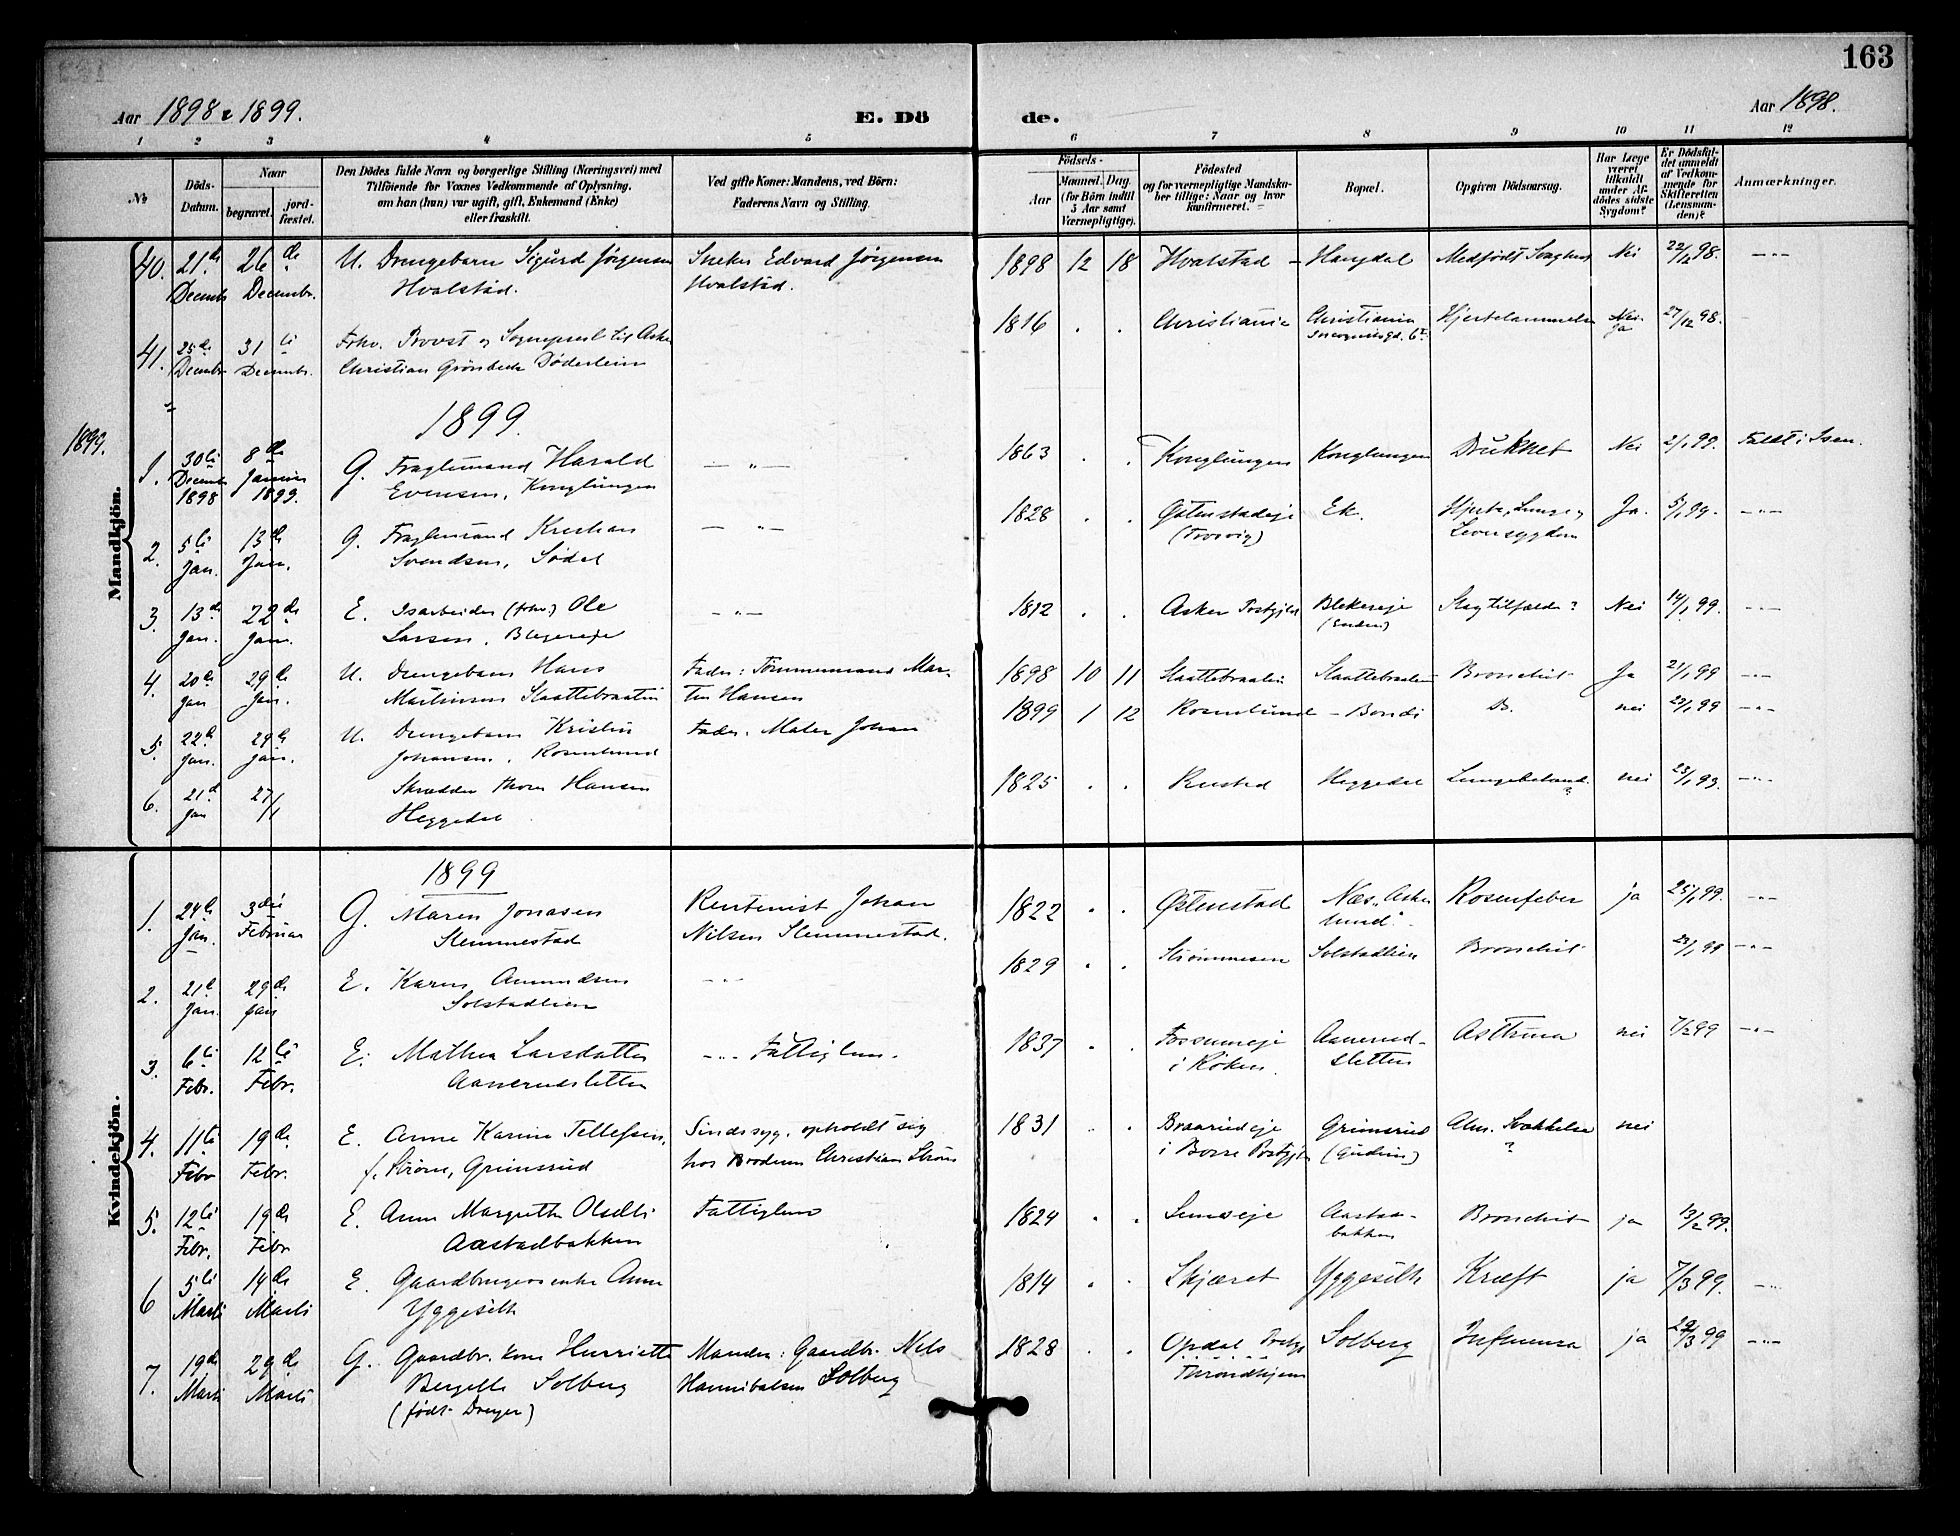 163
Aar 1898 & 1899.
E. Dö
de.
Aar 1898.
1 2 3 4 5 6 7 8 9 10 11 12
No
Döds-Datum.
Naar
begravet.
jordfæstet.
Den Dödes fulde Navn og borgerlige Stilling (Næringsvei) med
Tilföiende for Voxnes Vedkommende af Oplysning,
om han (hun) var ugift, gift, Enkemand (Enke)
eller fraskilt.
Ved gifte Koner: Mandens, ved Börn:
Faderens Navn og Stilling.
Födsels-
Aar
Maaned. Dag.
(for Börn indtil
5 Aar samt
Værnepligtige).
Födested
og for værnepligtige Mandskaber tillige: Naar og hvor
konfirmeret.
Bopæl.
Opgiven Dödsaarsag.
Har Læge
været
tilkaldt
under Afdödes sidste
Sygdom?
Er Dödsfaldet anmeldt
af Vedkommende for
Skifteretten
(Lensmanden)?
Anmærkninger.
Mandkjön.
40. 21de Decembr 26de Decembr. U. Drengebarn Sigurd Jørgensen Sneker Edvard Jørgensen 1898 12 18 Hvalstad – Nei 22/12 98. –"–
Hvalstad. Hvalstad.
41. 25de Decembr 31te Decembr. Forhv. Provst og Sogneprest til Asker 1816 . . Christiania Christiania Hjertelammelse Nei Ja 27/12 98.
Christian Grönbeck Döderlein
1899
1899.
1. 30te Decembr 1898 8de Januar 1899. G. Harald –"– 1863 . . Konglungen Konglungen Druknet Nei 2/1 99. Faldt i Isen.
Evensen, Konglungen
2. 5te Jan. 13de Jan. G. Kristian –"– 1828 . . Østenstadeje Ek. Hjerte, Lunge, Ja. 5/1 99. –"–
Svendsen, Södal Leversygdom
3. 13de Jan. 22de Jan. E. Isarbeider (forhv.) Ole –"– 1812 . . Asker Blekereje Slagtilfælde? Nei 14/1 99. –"–
Larsen,
4. 20de Jan 29de Jan. U. Drengebarn Hans Fader: Tømmermand Mar- 1898 10 11 Slaattebraaten Slaattebraaten Bronchit Ja 21/1 99 –"–
Martinsen Slaattebraaten tin Hansen
5. 22de Jan. 29de Jan. U. Drengebarn Fader: Maler Johan 1899 1 12 Rosenlund – Bondi Do. nei 23/1 99 –"–
Johansen, Rosenlund
6. 21de Jan 27/1 Skrædder Thore Hansen 1825 . . Rustad Heggedal nei –"–
Heggedal
Kvindekjön.
1899
1. 24de Jan. 3die Februar G. Maren Jonasen Rentenist Johan 1822 . . Østenstad Næs, "Askerlund". Rosenfeber ja 25/1 99. –"–
Slemmestad Nilsen Slemmestad.
2. 21de Jan. 29de Jan E. Karen Amundsen –"– 1829 . . Solstadlien Bronchit 23/1 99 –"–
Solstadlien
3. 6te Febr. 12te Febr. E. Mathea Larsdatter –"– Fattiglem. 1837 . . Fossumeje i Røken. Aanerudsletten Asthma nei 7/2 99 –"–
Aanerudsletten
4. 11te Febr 19de Febr. E. Anne Karine Tellefsen, Sindssyg, opholdt sig 1831 . . Grimsrud Alm. Svakkelse ? nei
f. Strøm, Grimsrud hos Broderen Christian Strøm
5. 12te Febr. 19de Febr E. Anne Margrethe Olsdtr Fattiglem 1824 . . Aastadbakken Bronchit ja 13/2 99.
Aastadbakken
6 5te Marts 14de Marts E. Gaardbrugerenke Anne 1814 . . Skjæret Yggeseth Kræft ja 7/3 99. –"–
Yggeseth
7. 19de Marts 29de Marts G. Gaardbr. kone Henriette Manden: Gaardbr. Nels 1828 . . Opdal Solberg Influenza ja –"–
Solberg Hannibalsen Solberg Throndhjem
(født Dreyer)